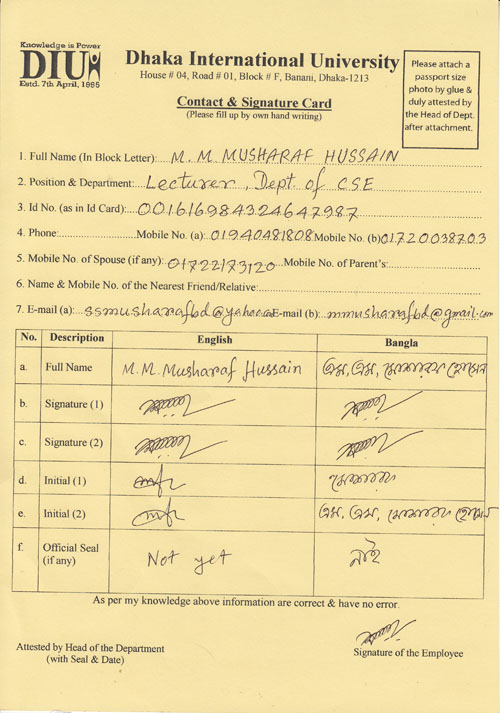 Knowledge is Power
DIU
Estd. 7th April, 1995
Dhaka International University
House # 04, Road # 01, Block # F, Banani, Dhaka-1213
Contact & Signature Card
(Please fill up by own hand writing)
Please attach a
passport size
photo by glue &
duly attested by
the Head of Dept.
after attachment.
1. Full Name (In Block Letter): M. M. MUSHARAF HUSSAIN
2. Position & Department: Lecturer, Dept. of CSE
3. Id No. (as in Id Card): 00161698432464 7987
4. Phone: Mobile No. (a): 01940481808 Mobile No. (b) 01720038703
5. Mobile No. of Spouse (if any): 01722173120 Mobile No. of Parent's:
6. Name & Mobile No. of the Nearest Friend/Relative:
7. E-mail (a): ssmusharafbd@yahoo E-mail (b): mmusharafbd@gmail.com
No. Description English Bangla
a. Full Name M. M. Musharaf Hussain এম, এম, মোশাররফ হোসেন
b. Signature (1)
c. Signature (2)
d. Initial (1) মোশাররফ
e. Initial (2) এম, এম, মোশাররফ হোসেন
f. Official Seal (if any) Not yet নাই
As per my knowledge above information are correct & have no error.
Attested by Head of the Department
(with Seal & Date)
Signature of the Employee